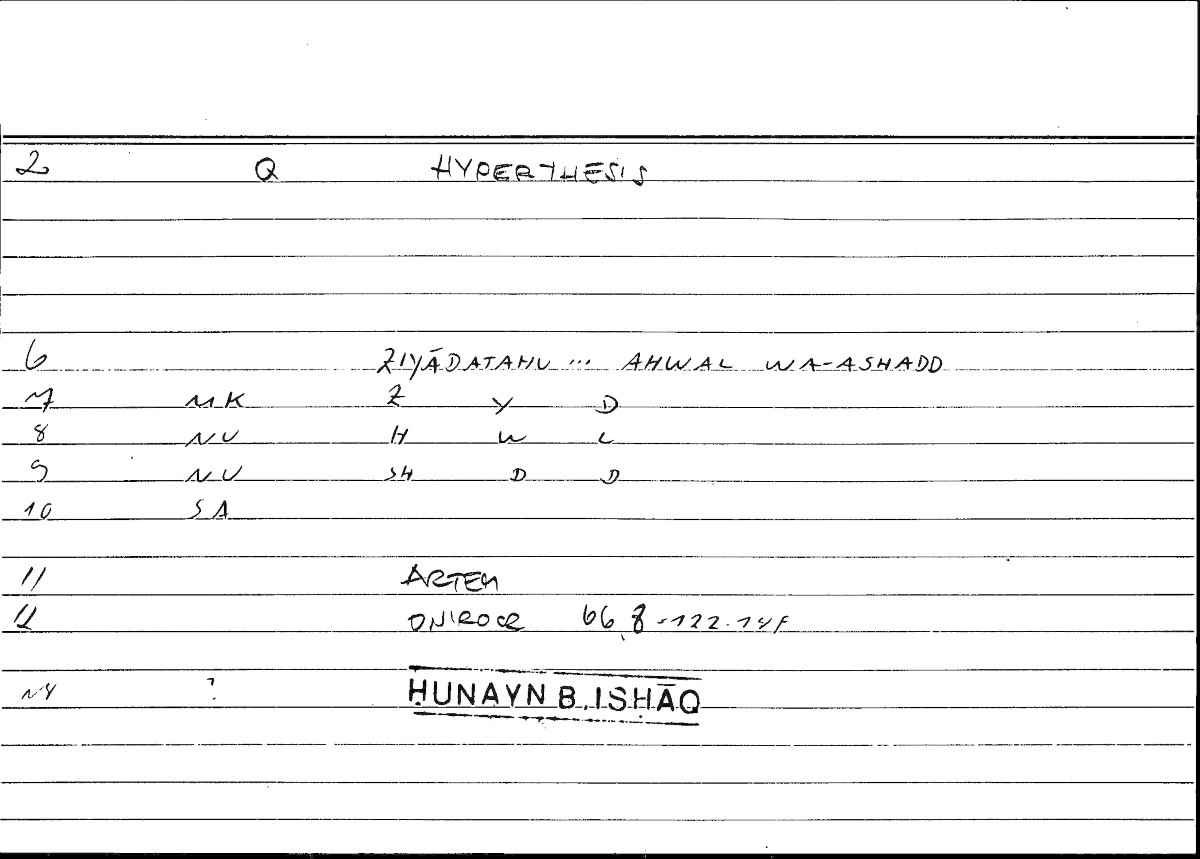 2 Q HYPERTHESIS
6 ZIYĀDATAHU ... AHWAL WA-ASHADD
7 MK Z Y D
8 NU H W L
9 NU SH D D
10 SA
11 ARTEM
12 ONIROCR 66,8 = 122.14F
14 ?
ḤUNAYN B. ISḤĀQ